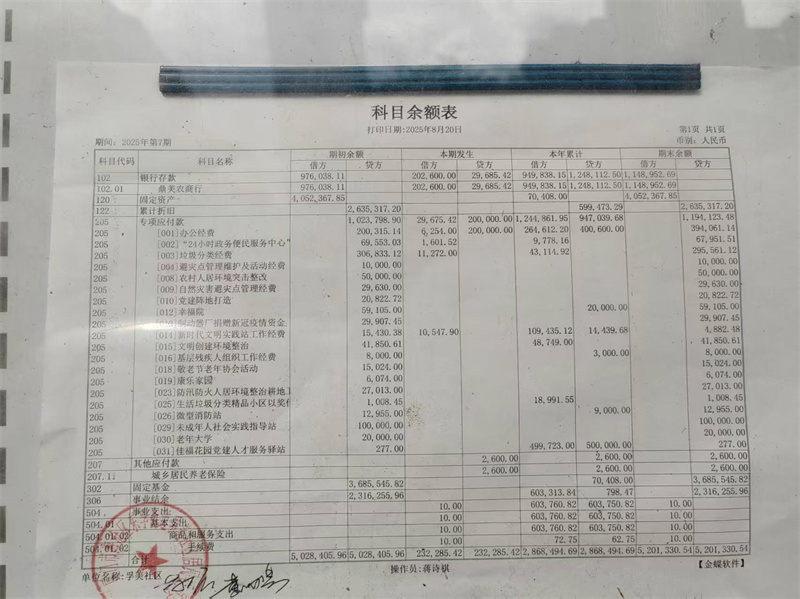 科目余额表
打印日期:2025年8月20日
第1页 共1页
期间: 2025年第7期 币别: 人民币
科目代码 科目名称 期初余额 本期发生 本年累计 期末余额
借方 贷方 借方 贷方 借方 贷方 借方 贷方
102 银行存款 976,038.11 202,600.00 29,685.42 949,838.15 1,248,112.50 1,148,952.69
102.01 鼎美农商行 976,038.11 202,600.00 29,685.42 949,838.15 1,248,112.50 1,148,952.69
120 固定资产 4,052,367.85 70,408.00 4,052,367.85
122 累计折旧 2,635,317.20 599,473.29 2,635,317.20
205 专项应付款 1,023,798.90 29,675.42 200,000.00 1,244,861.95 947,039.68 1,194,123.48
205 [001]办公经费 200,315.14 6,254.00 200,000.00 264,612.20 400,600.00 394,061.14
205 [002]“24小时政务便民服务中心” 69,553.03 1,601.52 9,778.16 67,951.51
205 [003]垃圾分类经费 306,833.12 11,272.00 43,114.92 295,561.12
205 [004]避灾点管理维护及活动经费 10,000.00 10,000.00
205 [008]农村人居环境突击整改 50,000.00 50,000.00
205 [009]自然灾害避灾点管理经费 29,630.00 29,630.00
205 [010]党建阵地打造 20,822.72 20,822.72
205 [012]幸福院 59,105.00 20,000.00 59,105.00
205 制动器厂捐赠新冠疫情资金 29,907.45 29,907.45
205 [014]新时代文明实践站工作经费 15,430.38 10,547.90 109,435.12 14,439.68 4,882.48
205 [015]文明创建环境整治 41,850.61 48,749.00 41,850.61
205 [016]基层残疾人组织工作经费 8,000.00 3,000.00 8,000.00
205 [018]敬老节老年协会活动 15,024.00 15,024.00
205 [019]康乐家园 6,074.00 6,074.00
205 [023]防汛防火人居环境整治耕地 27,013.00 27,013.00
205 [025]生活垃圾分类精品小区以奖 1,008.45 18,991.55 1,008.45
205 [026]微型消防站 12,955.00 9,000.00 12,955.00
205 [029]未成年人社会实践指导站 100,000.00 100,000.00
205 [030]老年大学 20,000.00 20,000.00
205 [031]佳福花园党建人才服务驿站 277.00 499,723.00 500,000.00 277.00
207 其他应付款 2,600.00 2,600.00 2,600.00
207.11 城乡居民养老保险 2,600.00 2,600.00 2,600.00
302 固定基金 3,685,545.82 70,408.00 3,685,545.82
306 事业结余 2,316,255.96 603,313.84 798.47 2,316,255.96
504 事业支出 10.00 603,760.82 603,750.82 10.00
504.01 基本支出 10.00 603,760.82 603,750.82 10.00
504.01.02 商品和服务支出 10.00 603,760.82 603,750.82 10.00
504.01.02 手续费 10.00 72.75 62.75 10.00
合计 5,028,405.96 5,028,405.96 232,285.42 232,285.42 2,868,494.69 2,868,494.69 5,201,330.54 5,201,330.54
单位名称:孚美社区 操作员: 蒋诗祺 【金蝶软件】